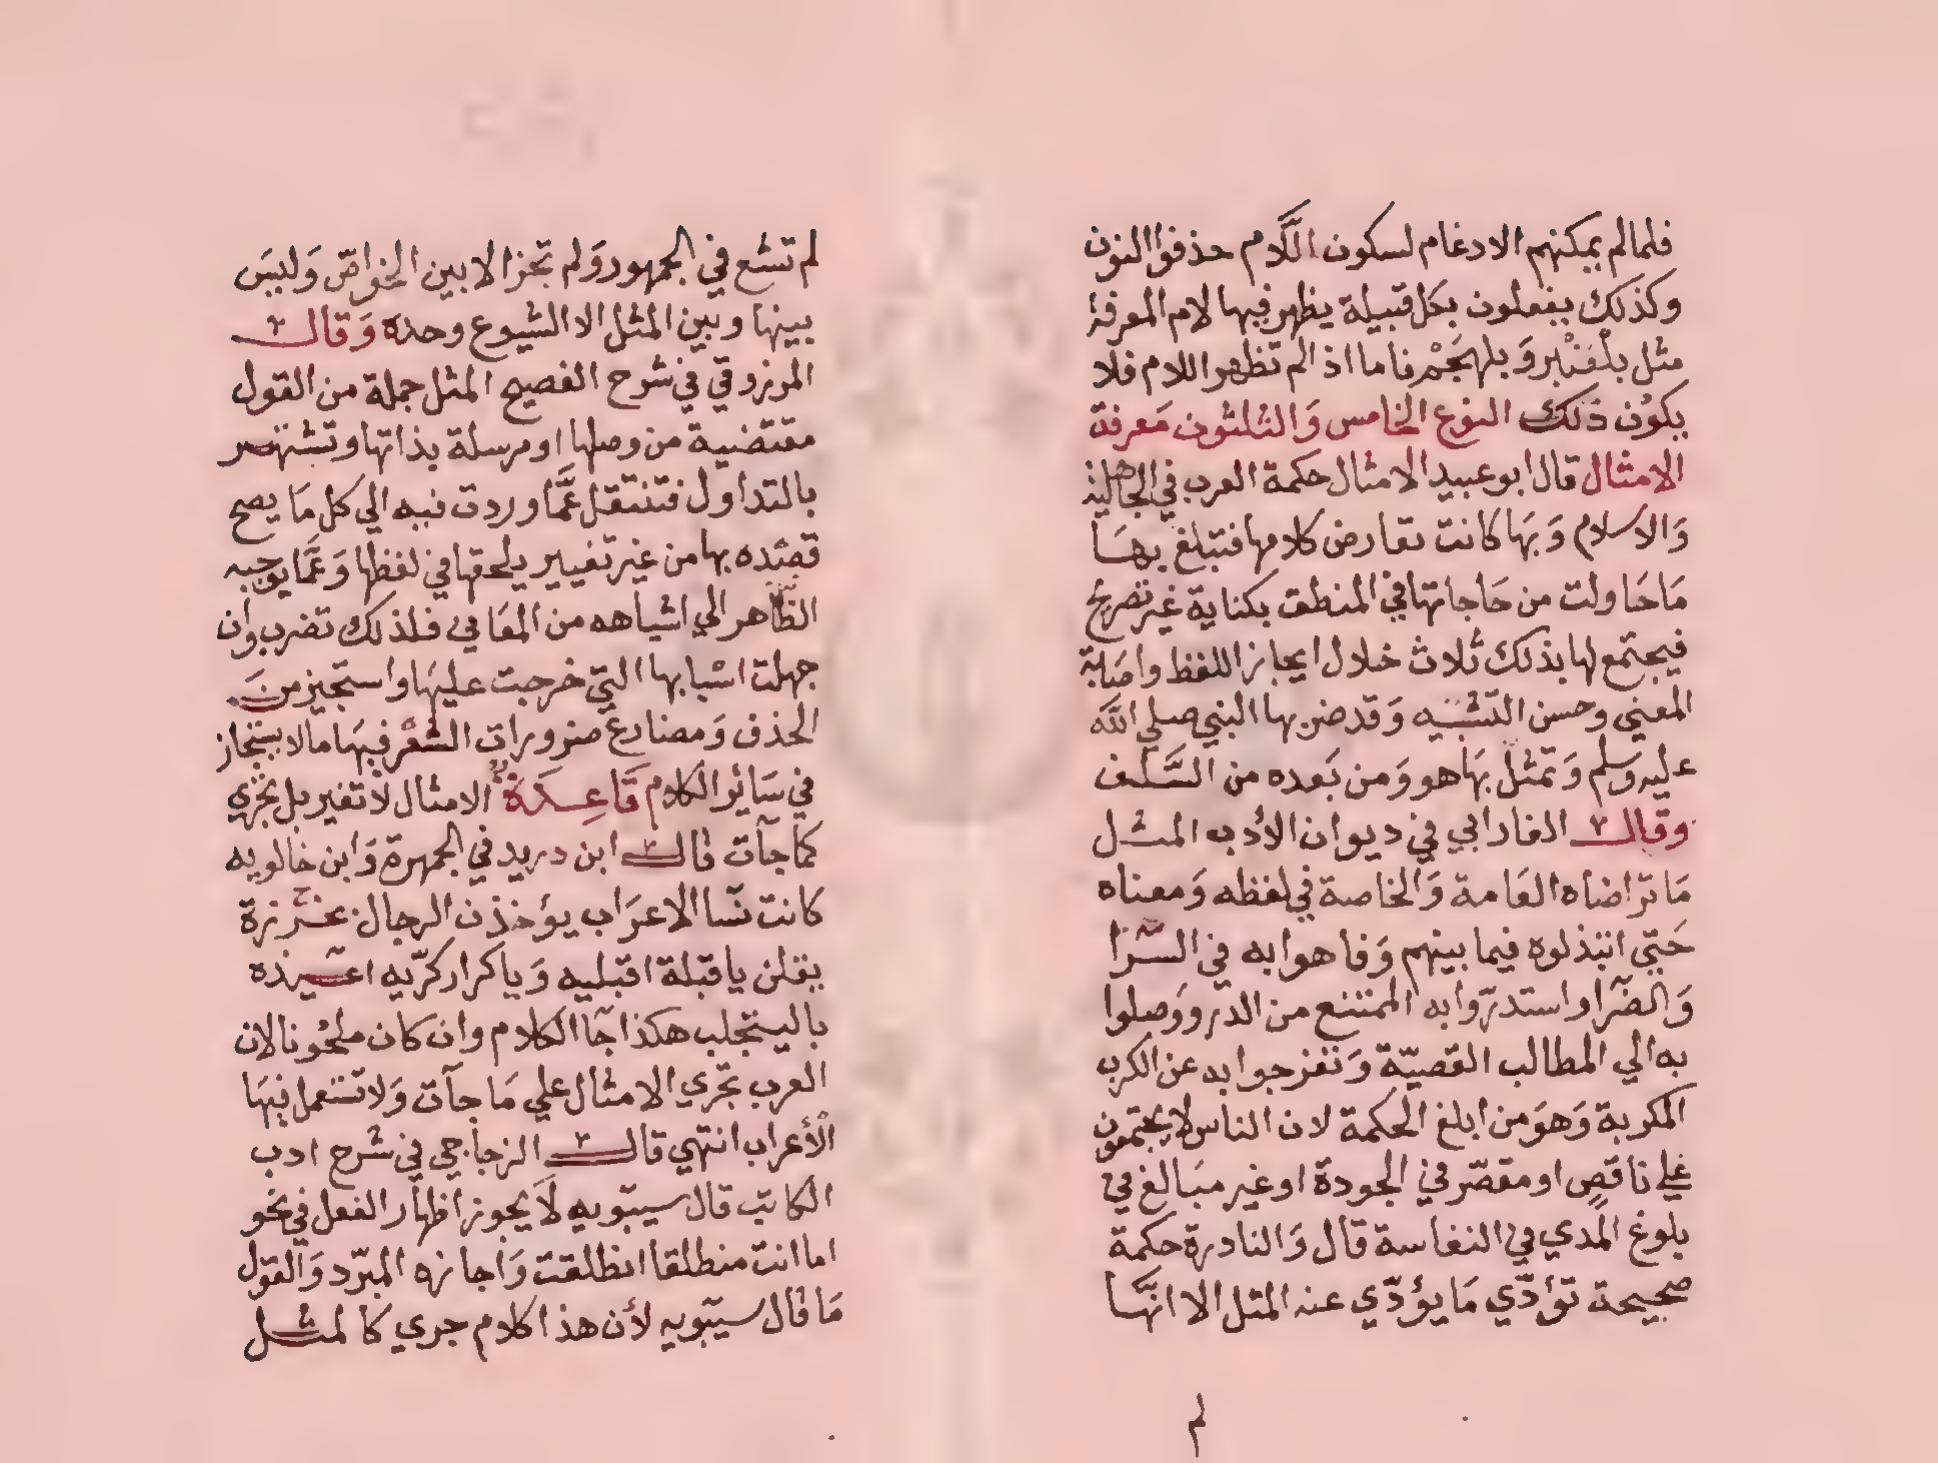 فلما لم يمكنهم الادغام لسكون اللام حذفوا النون
وكذلك يفعلون بكل قبيلة يظهر فيها لام المعرفة
مثل بلعنبر وَبلهجيم فاما اذا لم تظهر اللام فلا
يكون ذلك النوع الخامس وَالثلثون مَعرفة
الامثال قال ابو عبيد الامثال حكمة العرب في الجاهلية
وَالاسلام وَبهَا كانت تعارض كلامها فتبلغ بهَا
مَا حَاولت من حَاجاتها في المنطق بكناية غير تصريح
فيجتمع لها بذلك ثلاث خلال ايجاز اللفظ واصَابة
المعني وحسن التشبيه وَقد ضربها النبي صلي الله
عليه وَسلم وَتمثل بهَا هو وَمن بَعده من السَّلف
وقال الفارابي في ديوان الأدب المثل
مَا تراضاه العَامة وَالخاصة في لفظه وَمعناه
حَتي ابتذلوه فيما بينهم وَفاهوا به في السّرا
وَالضّرا واستدرّوا به الممتنع من الدر ووَصلوا
به الي المطالب القصيّة وَتفرجوا به عن الكرب
المكربة وَهوَ من ابلغ الحكمة لان الناس لا يجتمعون
علي ناقصٍ او مقصّر في الجودة او غير مبَالغ في
بلوغ المدي في النفاسة قال وَالنادرة حكمة
صحيحة تؤدّي مَا يؤدّي عنه المثل الا انهَّا
لم
لم تشع في الجمهور وَلم تجز الا بين الخواصّ وَليسَ
بينها وبين المثل الا الشيوع وحده وَقال
المرزوقي في شرح الفصيح المثل جملة من القول
مقتضبة من وصلها او مرسلة بذاتها وتشتهر
بالتداول فتنتقل عمَّا وردت فيه الي كل مَا يصح
قصده بها من غير تغيير يلحقها في لفظها وَعمَّا يوجبه
الظاهر الي اشباهه من المعَاني فلذلك تضرب وان
جهلت اسبابها التي خرجت عليهَا واستجيز من
الحذف وَمضارع ضرورات الشعر فيهَا مالا يستجاز
في سَائر الكلام قَاعِدَة الامثال لا تغير بل تجري
كما جآت قال ابن دريد في الجمهرة وَابن خالويه
كانت نسا الاعرَاب يؤخذن الرجال بخرزة
يقلن يا قبلة اقبليه وَيا كرار كرّيه اعيذه
باليتجلب هكذا جآ الكلام وان كان ملحونا لان
العرب تجري الامثال علي مَا جآت وَلا تستعمل فيهَا
الأعراب انتهي قال الزجاجي في شرح ادب
الكاتب قال سيبويه لَا يجوز اظهار الفعل في نحو
اما انت منطلقا انطلقت وَاجازه المبرّد وَالقول
مَا قال سيبويه لأن هذا كلام جري كالمثل